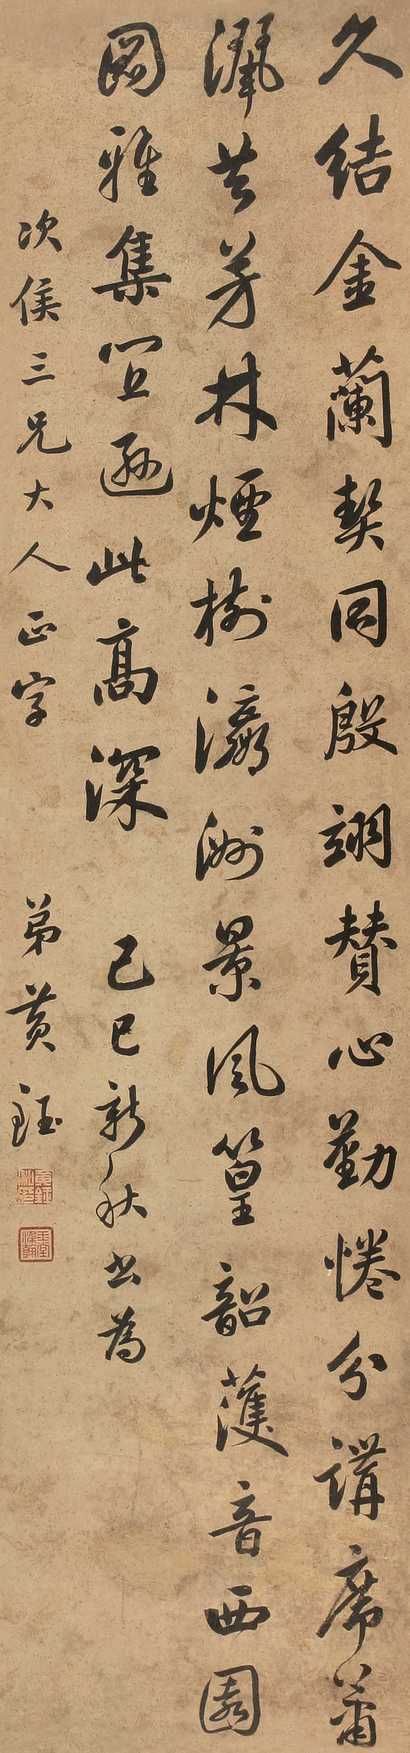 久結金蘭契同殷翊贊心勤惓分講席蕭
灑共芳林煙樹瀛洲景風篁韶頀音西園
圖雅集宜遜此高深 己巳新秋書為
次侯三兄大人正字 弟黃鈺